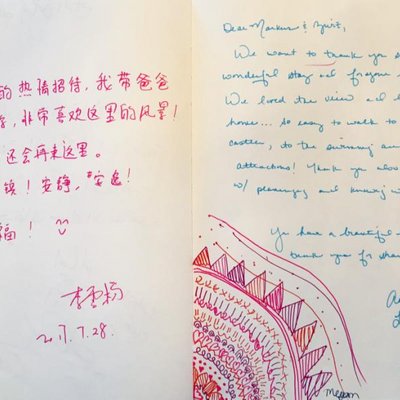 的热情招待，我带爸爸
，非常喜欢这里的风景！
还会再来这里。
镇！安静，安逸！
福！
2017.7.28.
Dear Markus &
We want to thank you
wonderful stay at
We loved the view and
house... so easy to walk to
castles, to the swimming
attractions! Thank you also
w/ planning and knowing
You have a beautiful
thank you for
Megan